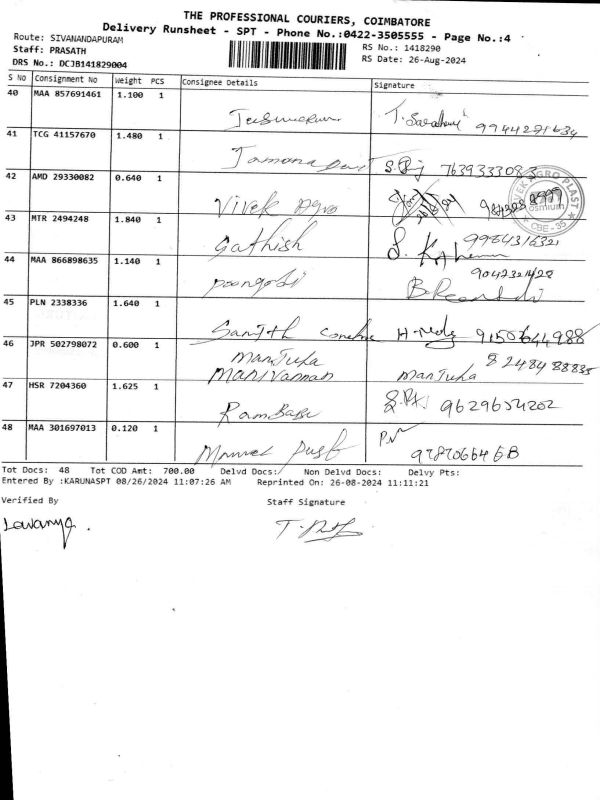 THE PROFESSIONAL COURIERS, COIMBATORE
Delivery Runsheet - SPT - Phone No.:0422-3505555 - Page No.:4
Route: SIVANANDAPURAM
RS No.: 1418290
Staff: PRASATH
RS Date: 26-Aug-2024
DRS No.: DCJB141829004
S No Consignment No Weight PCS Consignee Details Signature
40 MAA 857691461 1.100 1
41 TCG 41157670 1.480 1
S. 7639333083
42 AMD 29330082 0.640 1
Vivek Agro
AGRO PLAST
osmium
CBE-35
43 MTR 2494248 1.840 1
Gathish
44 MAA 866898635 1.140 1
poongodi
45 PLN 2338336 1.640 1
46 JPR 502798072 0.600 1
Manjula 8248488835
Manivannan Manjula
47 HSR 7204360 1.625 1
RamBabu 9629654202
48 MAA 301697013 0.120 1
Tot Docs: 48 Tot COD Amt: 700.00 Delvd Docs: Non Delvd Docs: Delvy Pts:
Entered By :KARUNASPT 08/26/2024 11:07:26 AM Reprinted On: 26-08-2024 11:11:21
Verified By Staff Signature
Lavanya.